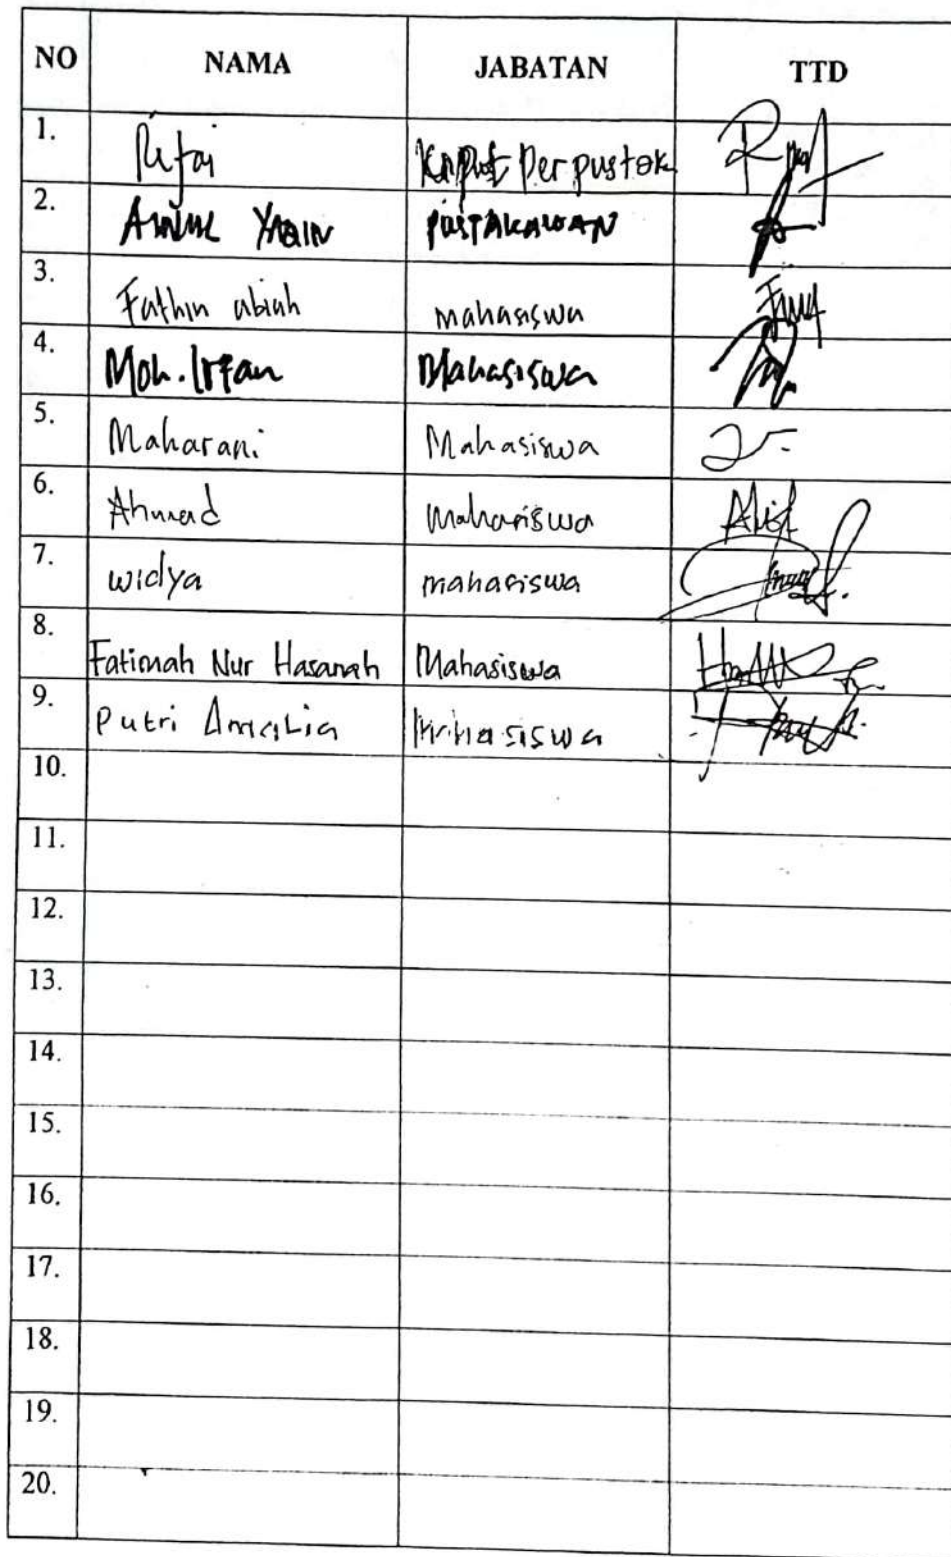 NO NAMA JABATAN TTD
1. Rifai Kaput Perpustak
2. Ainul Yaqin PUSTAKAWAN
3. Fathin abiah mahasiswa
4. Moh. Irfan Mahasiswa
5. Maharani Mahasiswa
6. Ahmad mahasiswa
7. widya mahasiswa
8. Fatimah Nur Hasanah Mahasiswa
9. Putri Amalia Mahasiswa
10.
11.
12.
13.
14.
15.
16.
17.
18.
19.
20.